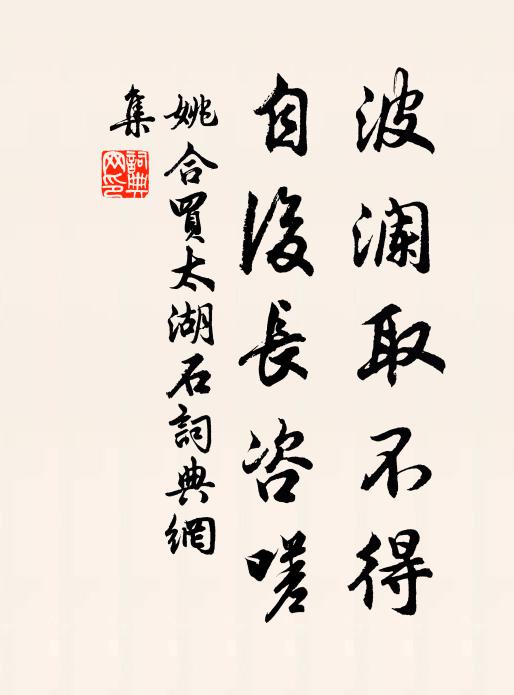 波澜取不得
自后長咨嗟
姚合買太湖石詞典網
集
詞典網印